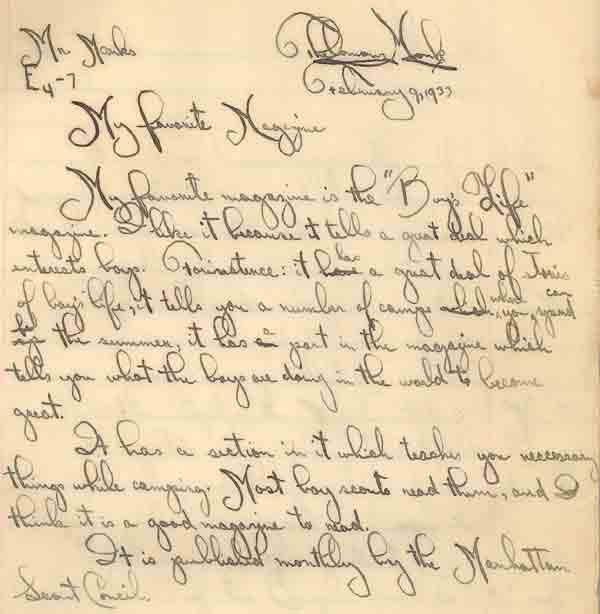 Mr. Marks Thelonious Monk
E4-7 February 9, 1933
My favorite Magazine
My favorite magazine is the "Boy's Life"
magazine. I like it because it tells a great deal which
interests boys. Forinstence: it has a great deal of stories
of boy's life, it tells you a number of camps where you can spend
the summer, it has a part in the magazine which
tells you what the boys are doing in the world to become
great.
It has a section in it which teaches you neccessary
things while camping. Most boy scouts read them, and I
think it is a good magazine to read.
It is published monthly by the Manhattan
Scout Concil.